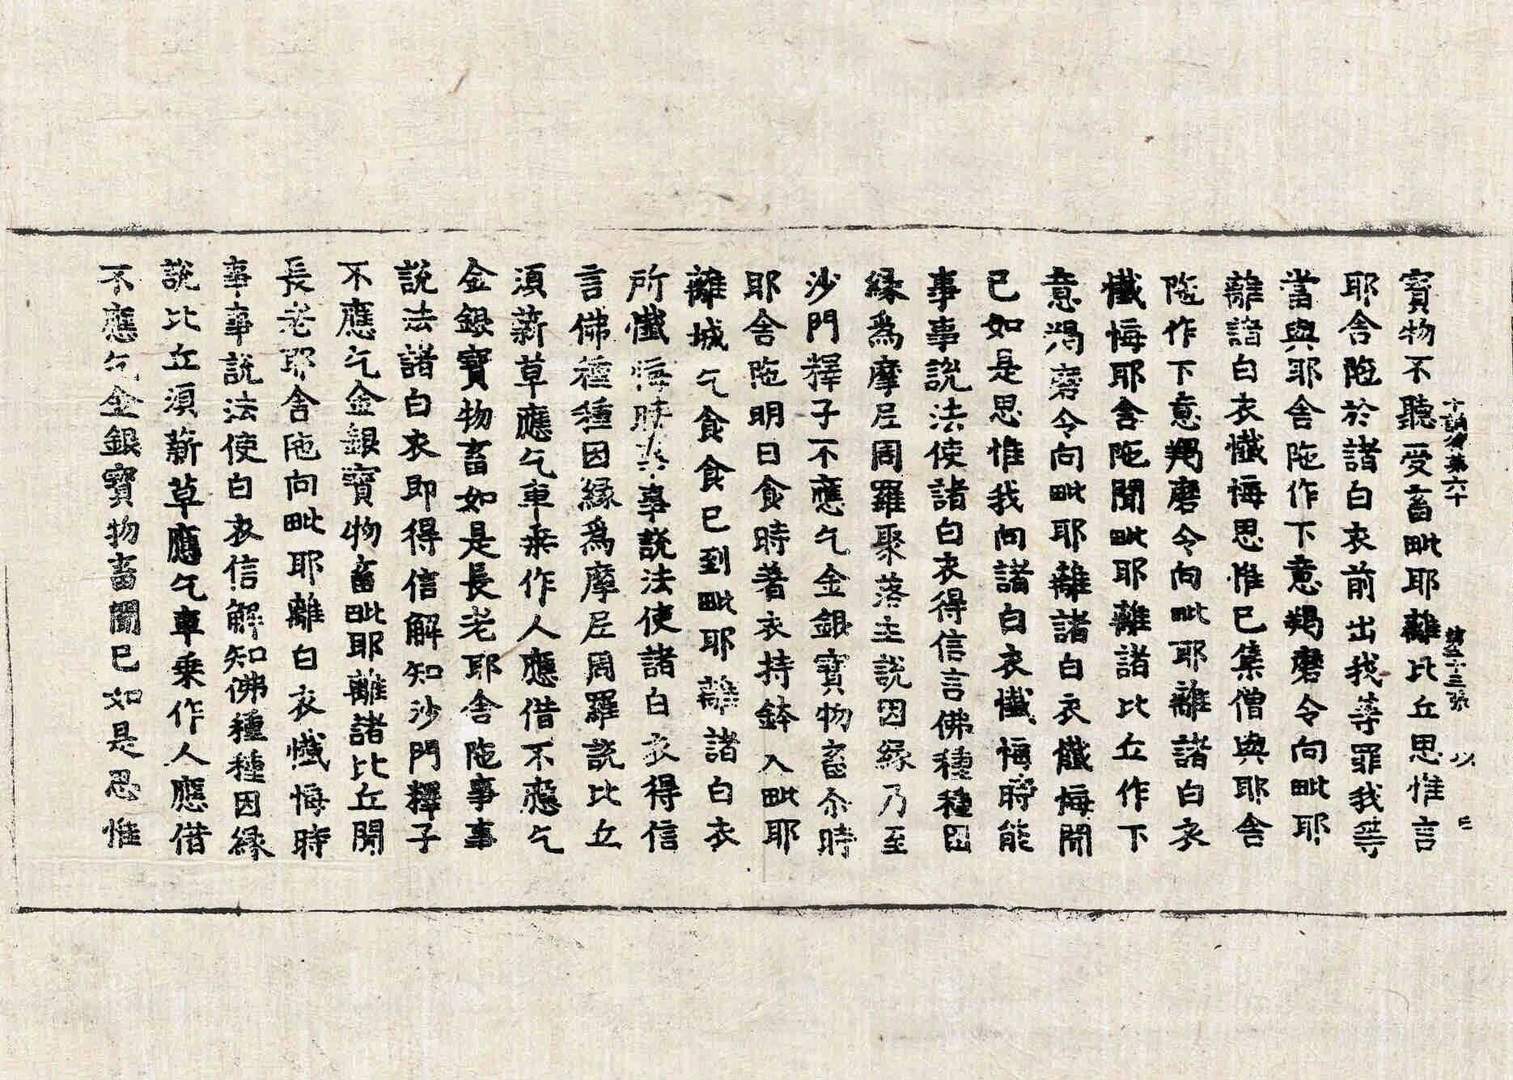 寳物不聽受畜毗耶離比丘思惟言
十誦律第六十 第三十三張
耶舍陁於諸白衣前出我等罪我等
當與耶舍陁作下意羯磨令向毗耶
離諸白衣懺悔思惟已集僧與耶舍
陁作下意羯磨令向毗耶離諸白衣
懺悔耶舍陁聞毗耶離諸比丘作下
意羯磨令向毗耶離諸白衣懺悔聞
已如是思惟我向諸白衣懺悔時能
事事說法使諸白衣得信言佛種種因
緣爲摩尼周羅聚落主說因緣乃至
沙門釋子不應乞金銀寳物畜尒時
耶舍陁明日食時著衣持鉢入毗耶
離城乞食食已到毗耶離諸白衣
所懺悔時事事說法使諸白衣得信
言佛種種因緣爲摩尼周羅說比丘
湏薪草應乞車乗作人應借不應乞
金銀寳物畜如是長老耶舍陁事事
說法諸白衣即得信解知沙門釋子
不應乞金銀寳物畜毗耶離諸比丘聞
長老耶舍陁向毗耶離白衣懺悔時
事事說法使白衣信解知佛種種因緣
說比丘湏薪草應乞車乗作人應借
不應乞金銀寳物畜聞已如是思惟